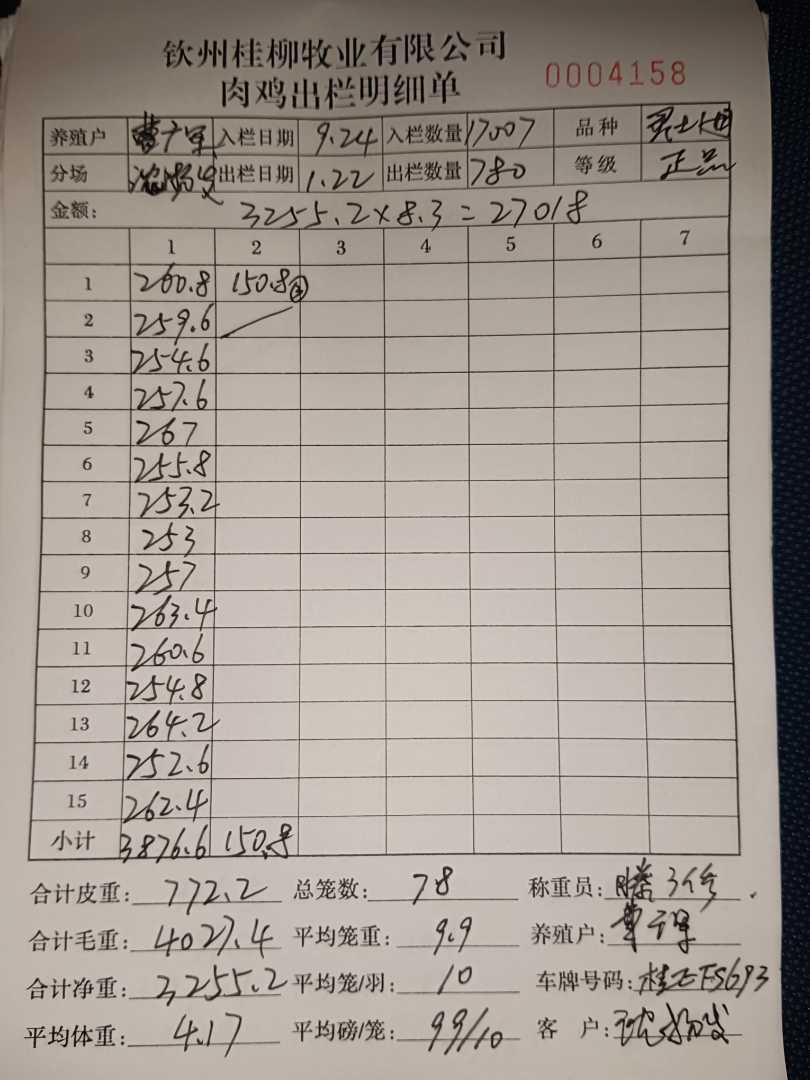 钦州桂柳牧业有限公司
肉鸡出栏明细单 0004158
养殖户 入栏日期 9.24 入栏数量 17007 品种
分场 出栏日期 1.22 出栏数量 780 等级 正品
金额: 3255.2×8.3=27018
1 2 3 4 5 6 7
1 260.8 150.8
2 259.6
3 254.6
4 257.6
5 267
6 255.8
7 253.2
8 253
9 257
10 263.4
11 260.6
12 254.8
13 264.2
14 252.6
15 262.4
小计 3876.6 150.8
合计皮重: 772.2 总笼数: 78 称重员:
合计毛重: 4027.4 平均笼重: 9.9 养殖户:
合计净重: 3255.2 平均笼/羽: 10 车牌号码:
平均体重: 4.17 平均磅/笼: 99/10 客户: